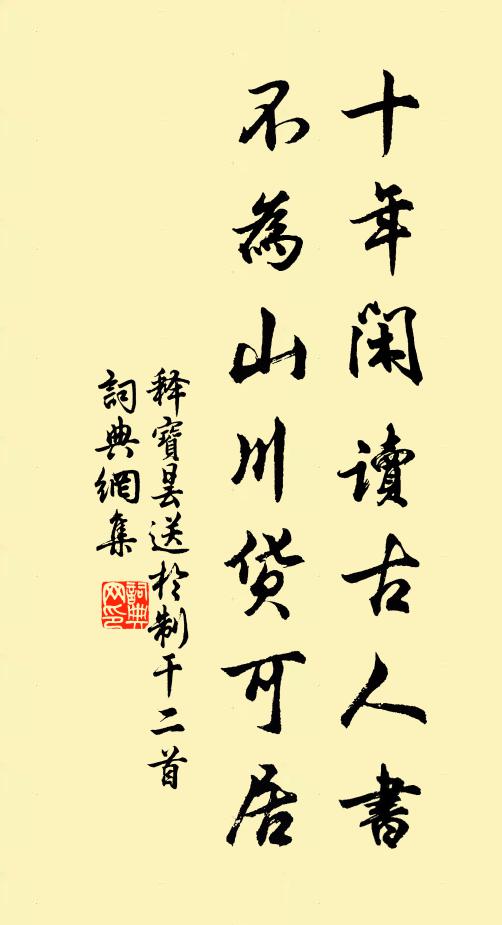 十年闲讀古人書
不為山川货可居
释寶曇送於制干二首
詞典網集
詞典網印